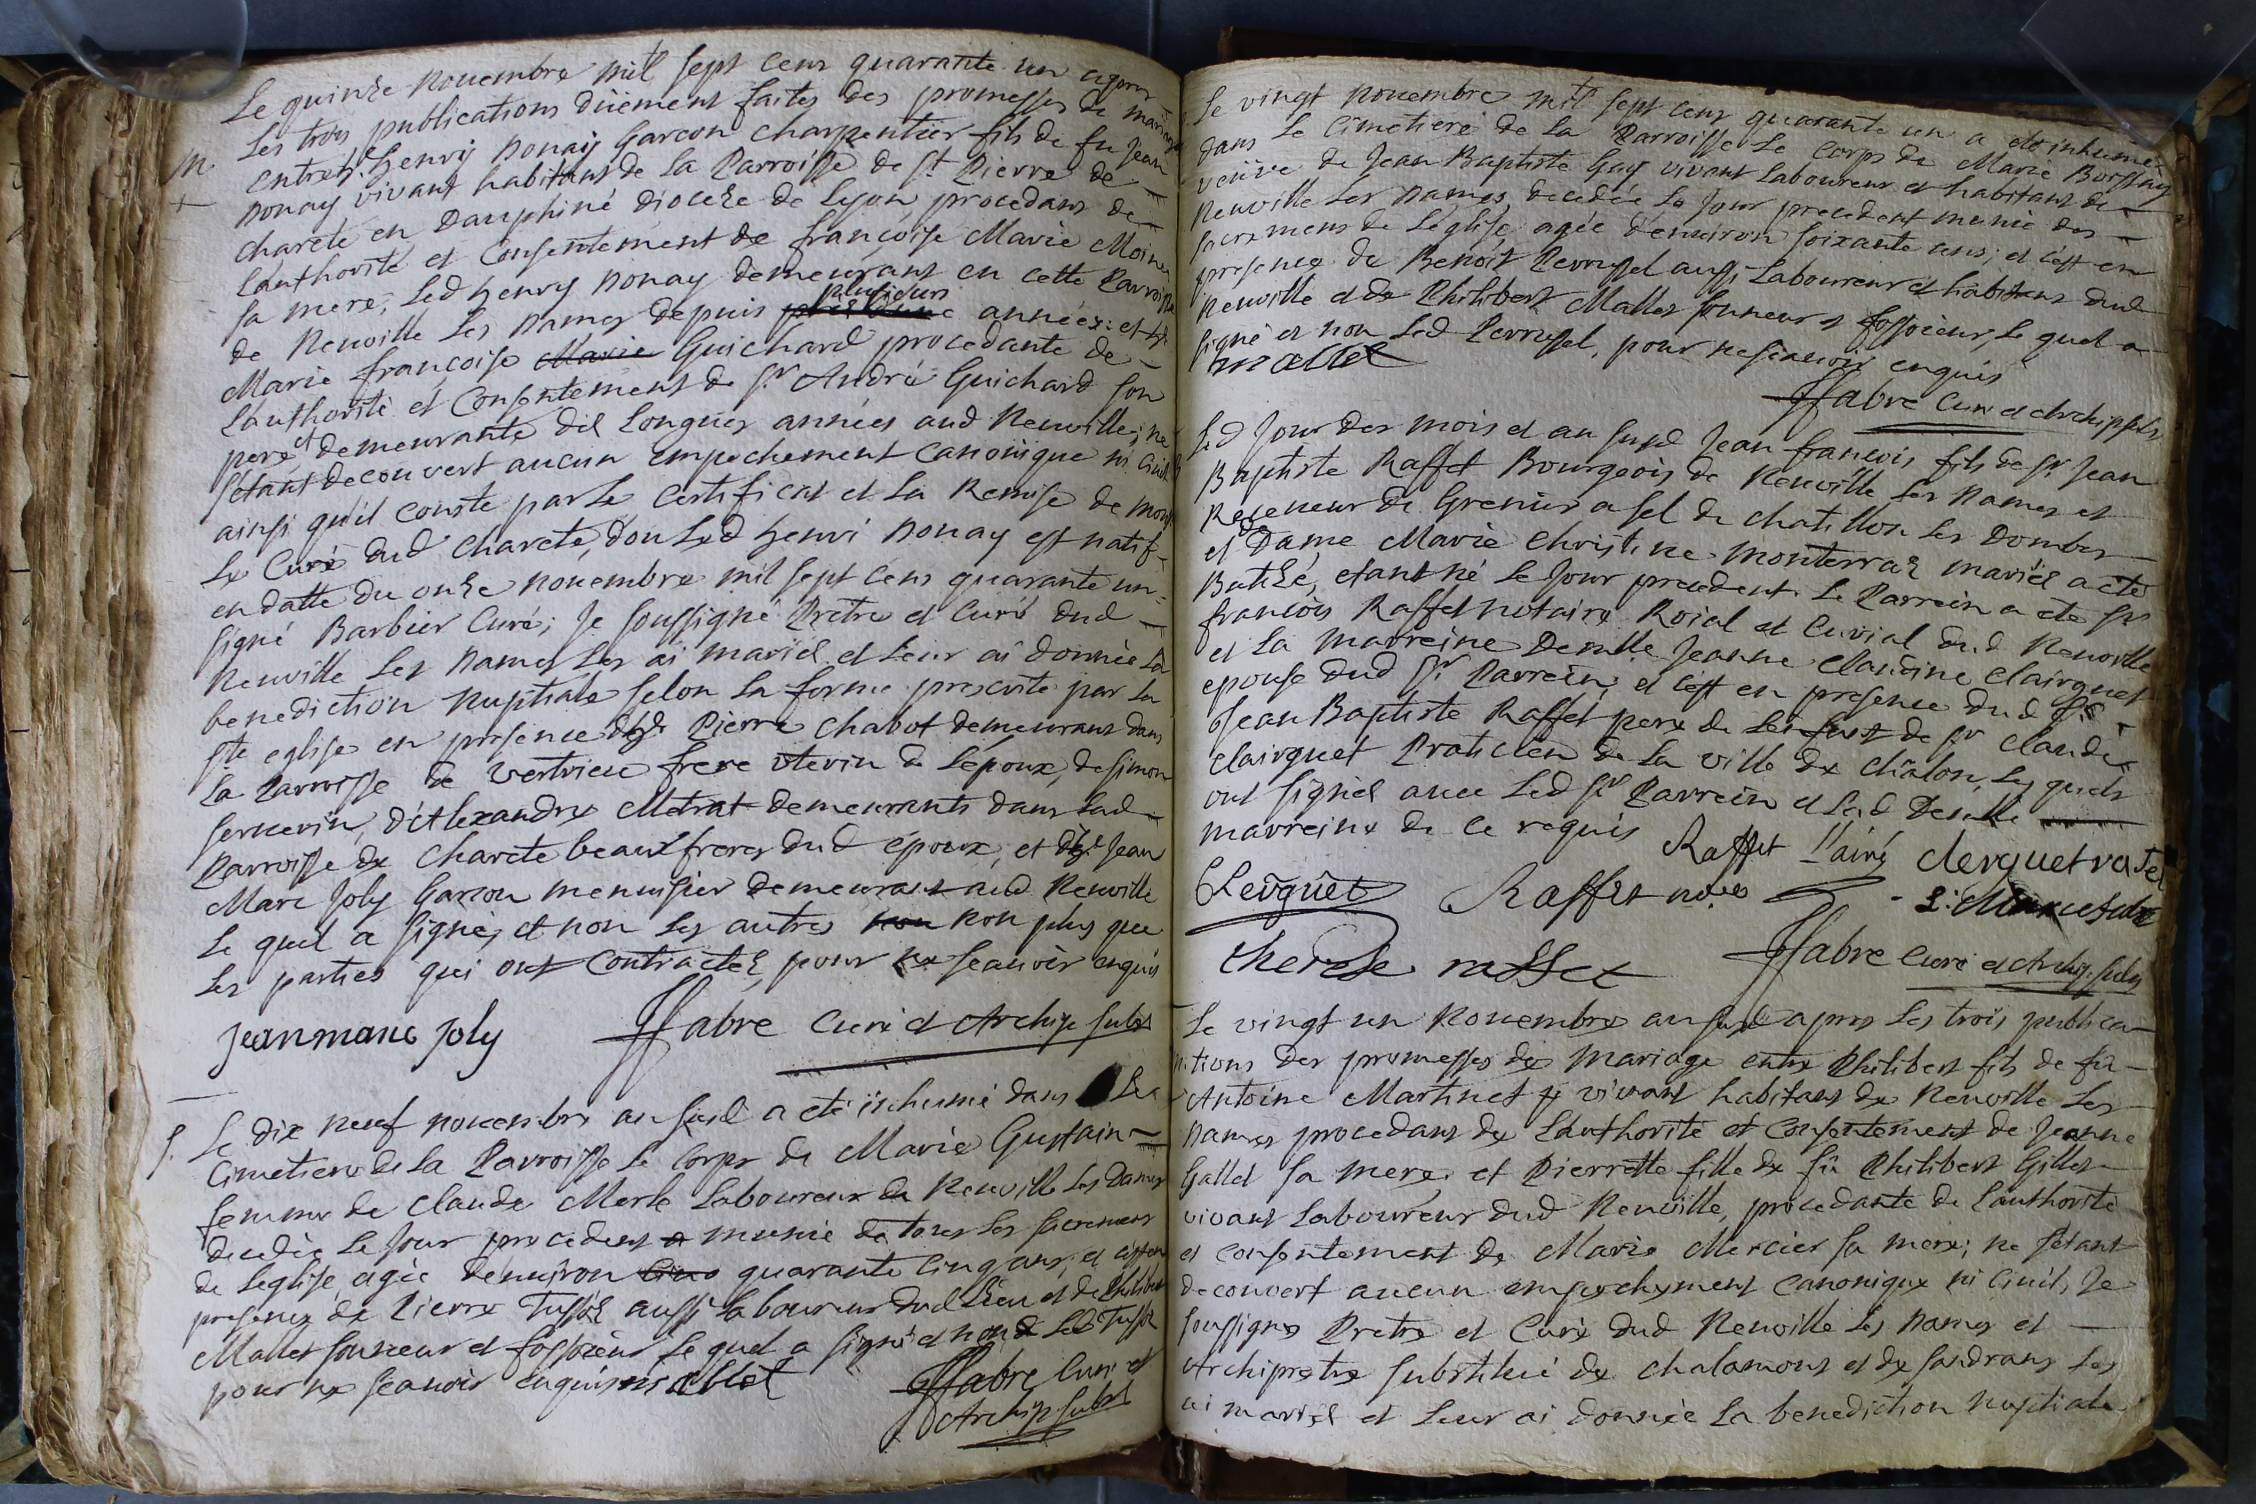 Le quinze novembre mil sept cens quarante un apres
Les trois publications düement faites des promesses de mariage
M. entre Sr. henry Donay Garcon charpentier fils de fu Jean
+ Donay vivant habitant de La Parroisse de St Pierre de
charete en Dauphiné diocèze de Lyon procedant de
L'authorité et Consentement de françoise Marie Moine
sa mere, Led henry Donay demeurant en cette Parroisse
de Neuville Les Dames depuis plusieurs années: et
Marie françoise Marie Guichard procedante de
L'authorité et Consentement de Sr André Guichard son
pere et demeurante dès Longues années aud Neuville; ne
s'étant decouvert aucun empechement canonique ni Civil
ainsi qu'il conste par Le Certificat et La Remise de mons
Le Curé dud Charete, d'ou Led henri Donay est natif
en datte du onze novembre mil sept cens quarante un
signé Barbier Curé; Je soussigné Pretre et Curé dud
Neuville Les Dames Les ai mariés et Leur ai donnée La
benediction nuptiale selon La forme prescrite par La
ste eglise en presence de Pierre Chabot demeurant dans
La Parroisse de vertrieu frere uterin de L'époux, de simon
servevin, d'Alexandre Metrat demeurants dans Lad
Parroisse de Charete beaux freres dud époux, et de Jean
Marc Joly Garcon menuisier demeurant aud Neuville
Le quel a signé, et non Les autres non non plus que
Les parties qui ont contractez, pour ne scauoir enquis
Jean marc Joly ffabre Curé et Archip substé
Le dix neuf novembre an susd a eté inhumé dans Le
S. Cimetiere de La Parroisse Le Corps de Marie Gustain
femme de Claude Merle Laboureur de Neuville Les Dames
decedée Le Jour precedent a munie de tous Les sacremens
de L'eglise agée d'environ cinq quarante cinq ans, et c'est en
presence de Pierre Tussot aussi Laboureur dud Lieu et de Philibert
Mallet sonneur et fossoieur Le quel a signé et non Led Tussot
pour ne scauoir enquis mallet ffabre Curé et
Archip substé
Le vingt novembre mil sept cens quarante un a eté inhumé
dans Le Cimetiere de La Parroisse Le Corps de Marie
veüve de Jean Baptiste Guy vivant Laboureur et habitant de
Neuville Les Dames, decedée Le Jour precedent munie des
sacremens de L'église agée d'environ soixante ans; et c'est en
presence de Benoit Perrussel aussi Laboureur et habitant dud
Neuville et de Philibert Mallet sonneur et fossoieur, Le quel a
signé et non Led Perrussel, pour ne scauoir enquis
mallet
ffabre Curé et Archip substé
Led Jour des mois et an susd Jean francois fils de Sr Jean
Baptiste Raffet Bourgeois de Neuville Les Dames et
Receveur du Grenier a sel de chatillon Les Dombes
et de Dame Marie Christine Monterraz mariés a eté
Batizé, etant né Le Jour precedent. Le Parrein a eté Sr
francois Raffet notaire Roial et Curial dud Neuville
et La marreine Demlle Jeanne Claudine Clairguet
epouse dud Sr Parrein; et c'est en presence dud Sr
Jean Baptiste Raffet pere de de Sr Claude
Clairguet Praticien de La ville de Châlon, Les quels
ont signés avec Led Sr Parrein et Lad Demlle
marreine de ce requis Raffet L'ainé Clerguet
Clerguet Raffet nore
therese raffet ffabre Curé et Archip. substé
Le vingt un Novembre an susd apres Les trois publica
tions des promesses de Mariage entre Philibert fils de fû
Antoine Martinet vivant habitant de Neuville Les
Dames procedant de L'authorité et Consentement de Jeanne
Gallet sa mere. et Pierrette fille de fû Philibert Gillet
vivant Laboureur dud Neuville, procedante de L'authorité
et consentement de Marie Mercier sa mere; ne s'étant
decouvert aucun empechement canonique ni Civil, Je
soussigné Pretre et Curé dud Neuville Les Dames et
Archipretre substitué de chalamont et de sandrans Les
ai mariés et Leur ai donnée La benediction nuptiale